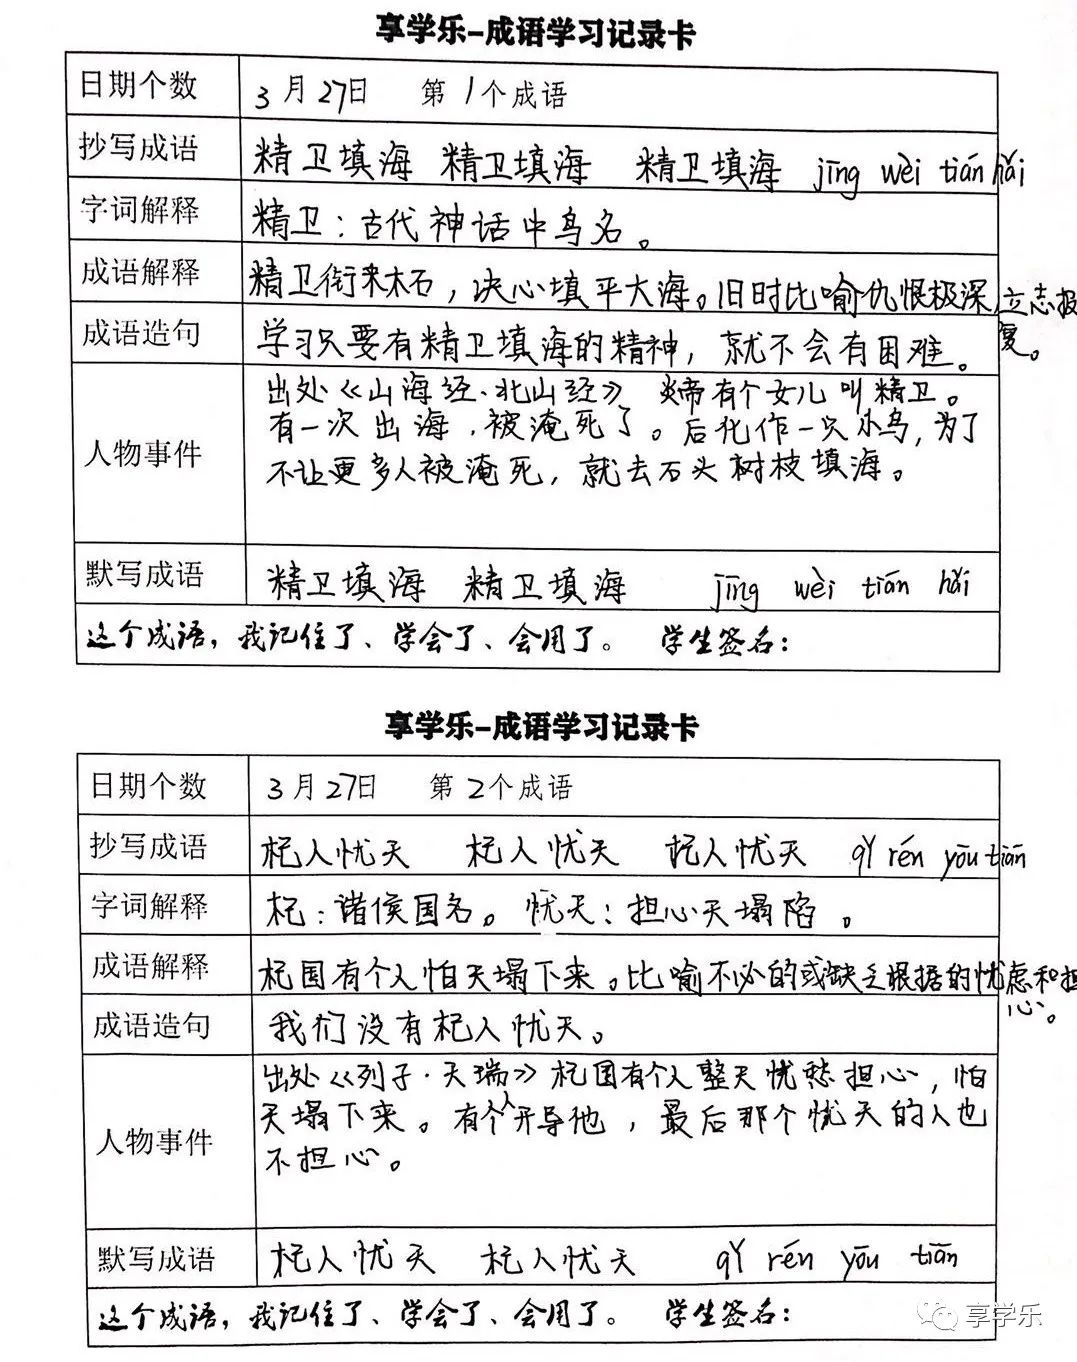 享学乐-成语学习记录卡
日期个数 3月27日 第1个成语
抄写成语 精卫填海 精卫填海 精卫填海 jīng wèi tián hǎi
字词解释 精卫：古代神话中鸟名。
成语解释 精卫衔来木石，决心填平大海。旧时比喻仇恨极深，立志报
复。
成语造句 学习只要有精卫填海的精神，就不会有困难。
出处《山海经·北山经》 炎帝有个女儿叫精卫。
有一次出海，被淹死了。后化作一只小鸟，为了
人物事件 不让更多人被淹死，就去石头树枝填海。
默写成语 精卫填海 精卫填海 jīng wèi tián hǎi
这个成语，我记住了、学会了、会用了。 学生签名：
享学乐-成语学习记录卡
日期个数 3月27日 第2个成语
抄写成语 杞人忧天 杞人忧天 杞人忧天 qǐ rén yōu tiān
字词解释 杞：诸侯国名。 忧天：担心天塌陷。
成语解释 杞国有个人怕天塌下来。比喻不必的或缺乏根据的忧虑和担
心。
成语造句 我们没有杞人忧天。
出处《列子·天瑞》杞国有个人整天忧愁担心，怕
天塌下来。有个人开导他，最后那个忧天的人也
人物事件 不担心。
默写成语 杞人忧天 杞人忧天 qǐ rén yōu tiān
这个成语，我记住了、学会了、会用了。 学生签名：
享学乐